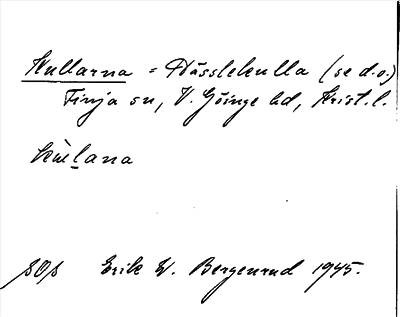 Kullarna = Hässlekulla (se d.o.)
Finja sn, V. Göinge hd, Krist. l.
SOs Erik W. Bergenrud 1945.